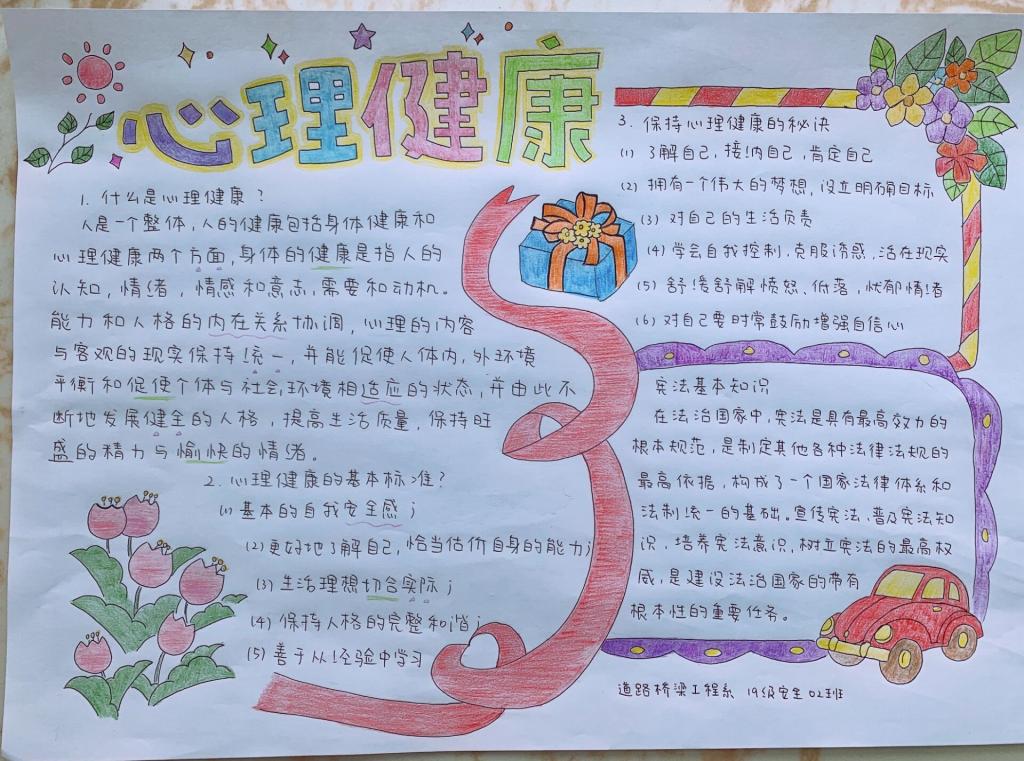 心理健康
1. 什么是心理健康？
人是一个整体，人的健康包括身体健康和
心理健康两个方面，身体的健康是指人的
认知，情绪，情感和意志，需要和动机。
能力和人格的内在关系协调，心理的内容
与客观的现实保持统一，并能促使人体内，外环境
平衡和促使个体与社会，环境相适应的状态，并由此不
断地发展健全的人格，提高生活质量，保持旺
盛的精力与愉快的情绪。
2. 心理健康的基本标准？
(1) 基本的自我安全感；
(2) 更好地了解自己，恰当估价自身的能力；
(3) 生活理想切合实际；
(4) 保持人格的完整和谐；
(5) 善于从经验中学习
3. 保持心理健康的秘诀
(1) 了解自己，接纳自己，肯定自己
(2) 拥有一个伟大的梦想，设立明确目标
(3) 对自己的生活负责
(4) 学会自我控制，克服诱惑，活在现实
(5) 舒缓舒解愤怒、低落，忧郁情绪
(6) 对自己要时常鼓励增强自信心
宪法基本知识
在法治国家中，宪法是具有最高效力的
根本规范，是制定其他各种法律法规的
最高依据，构成了一个国家法律体系和
法制统一的基础。宣传宪法，普及宪法知
识，培养宪法意识，树立宪法的最高权
威，是建设法治国家的带有
根本性的重要任务。
道路桥梁工程系 19级安全02班